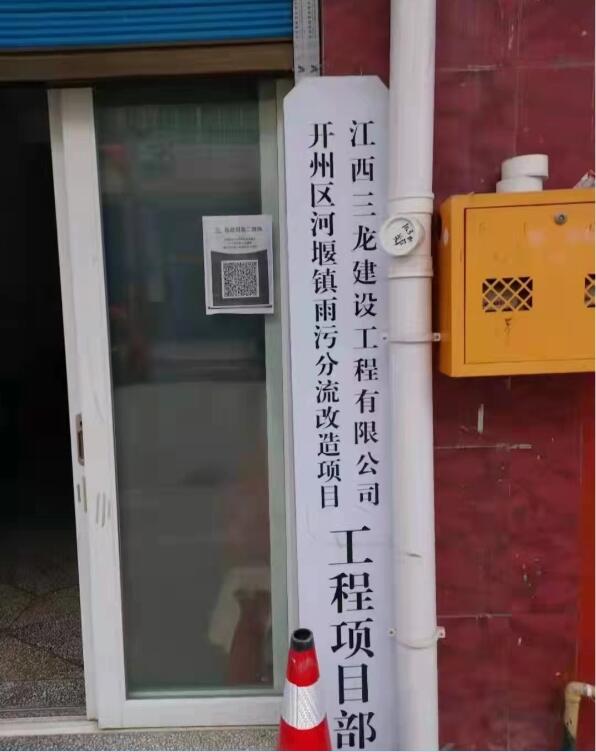 江西三龙建设工程有限公司
开州区河堰镇雨污分流改造项目
工程项目部